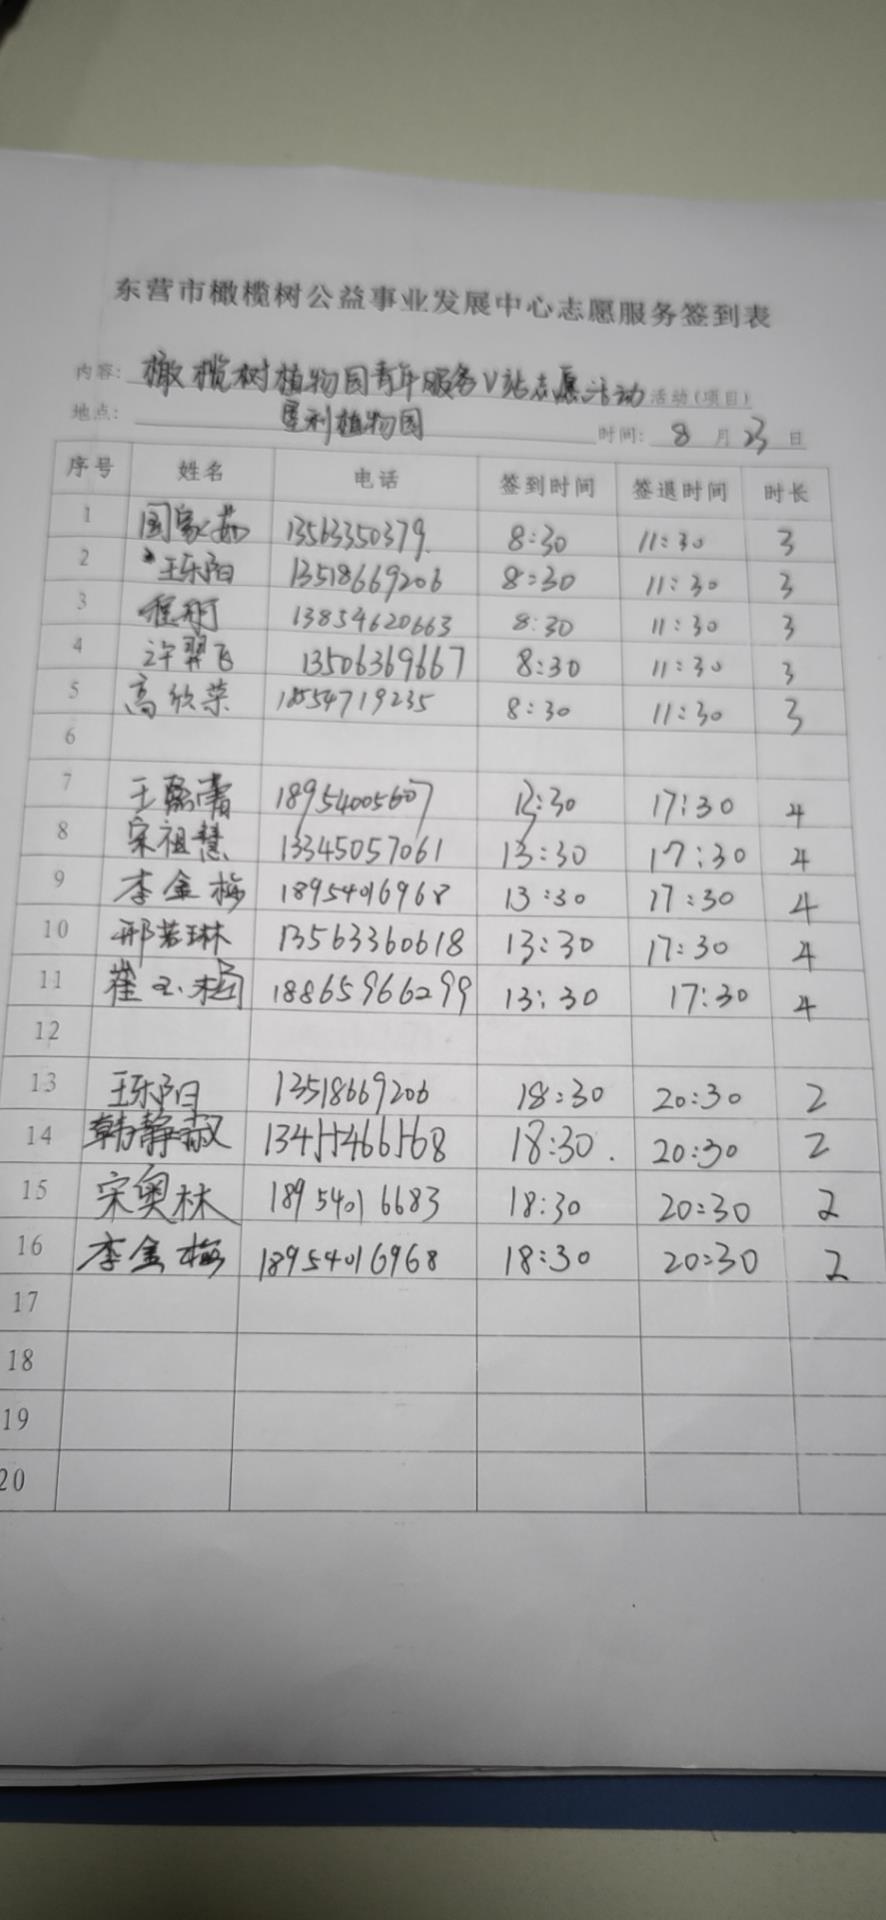 东营市橄榄树公益事业发展中心志愿服务签到表
内容: 橄榄树植物园青年服务V站志愿活动 活动(项目)
地点: 垦利植物园 时间: 8 月 23 日
序号 姓名 电话 签到时间 签退时间 时长
1 国家茹 13563350379 8:30 11:30 3
2 王乐阳 13518669206 8:30 11:30 3
3 程珂 13854620663 8:30 11:30 3
4 许羿飞 13506369667 8:30 11:30 3
5 高欣荣 18554719235 8:30 11:30 3
6
7 王 18954005607 13:30 17:30 4
8 宋祖慧 13345057061 13:30 17:30 4
9 李金梅 18954016968 13:30 17:30 4
10 邢若琳 13563360618 13:30 17:30 4
11 崔玉 18865966299 13:30 17:30 4
12
13 王乐阳 13518669206 18:30 20:30 2
14 韩静淑 13455466568 18:30. 20:30 2
15 宋奥林 18954016683 18:30 20:30 2
16 李金梅 18954016968 18:30 20:30 2
17
18
19
20